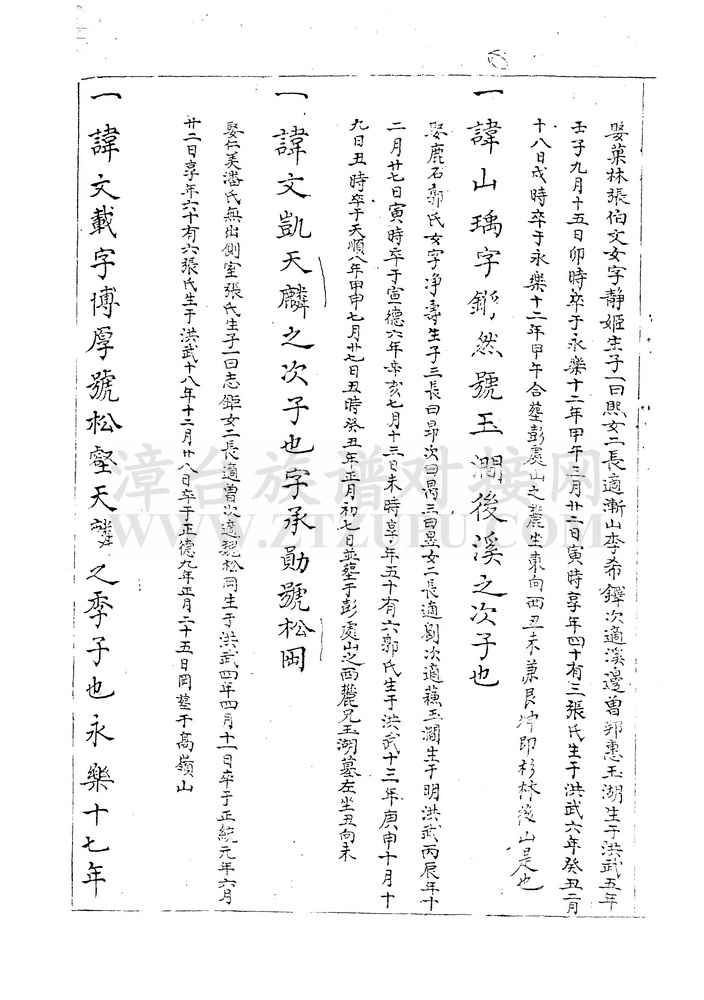 娶菓林張伯文女字靜姬生子一曰熙女二長適漸山李希鐸次適溪邊曾邦惠玉湖生于洪武五年
壬子九月十五日卯時卒于永樂十二年甲午三月廿二日寅時享年四十有三張氏生于洪武六年癸丑二月
十八日戌時卒于永樂十二年甲午合墓彭處山之麓坐東向西丑未兼艮坤即杉林後山是也
一諱山瑀字鏘然號玉澗後溪之次子也
娶鹿石郭氏女字净壽生子三長曰昂次曰禺三曰昱女二長適劉次適蘓玉澗生于明洪武丙辰年十
二月廿七日寅時卒于宣德六年辛亥七月十三日未時享年五十有六郭氏生于洪武十三年庚申十月十
九日丑時卒于天順八年甲申七月廿七日丑時癸丑年正月初七日並墓于彭處山之西麓兄玉湖墓左坐丑向未
一諱文凱天麟之次子也字承勛號松岡
娶仁美潘氏無出側室張氏生子一曰志鉅女二長適曾次適魏松岡生于洪武四年四月十一日卒于正統元年六月
廿二日享年六十有六張氏生于洪武十八年十二月廿八日卒于正德九年正月二十五日岡墓于高嶺山
一諱文載字博厚號松壑天麟之季子也永樂十七年
漳台族谱对接网
WWW.ZTZUPU.COM